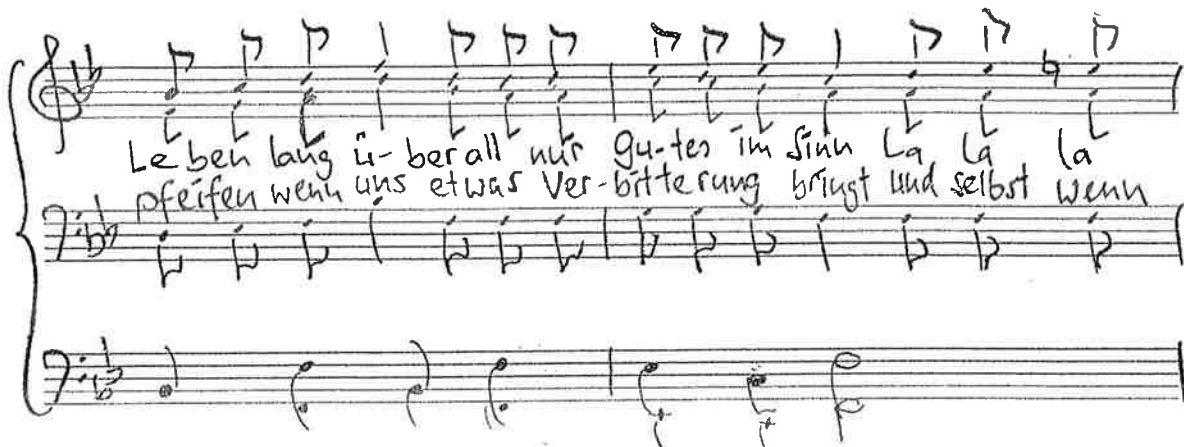 Le ben lang ü-berall nur gu-tes im Sinn La la la
pfeifen wenn uns etwas Ver-bitterung bringt und selbst wenn